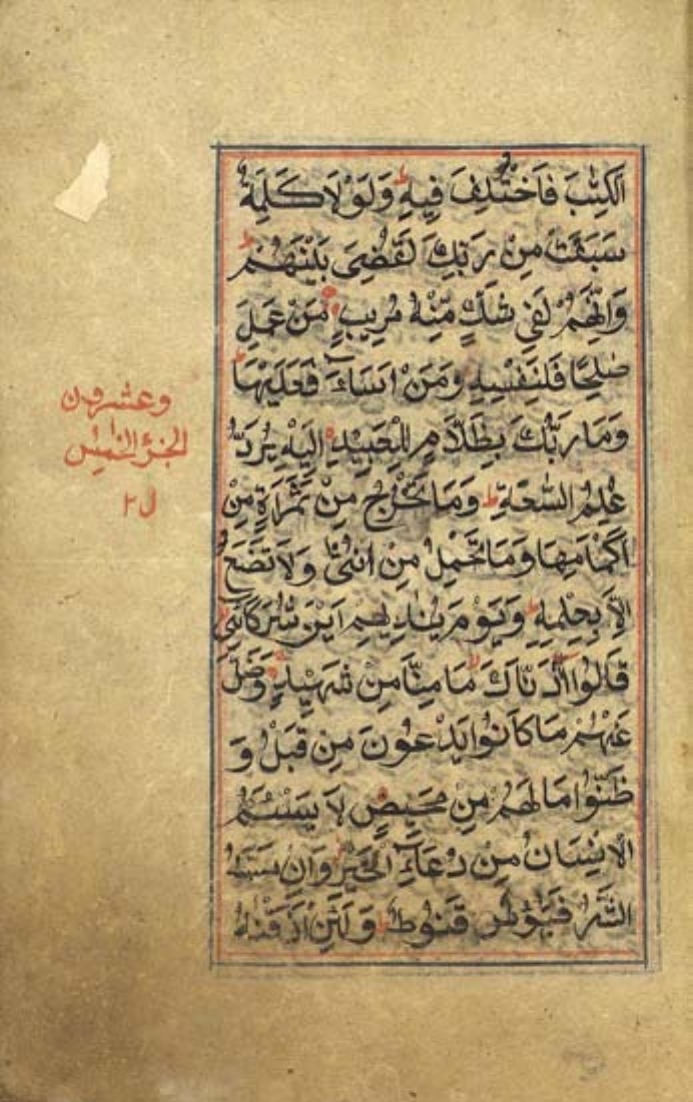 الكِتٰبَ فَاخْتُلِفَ فِيهِ ط وَلَوْلَا كَلِمَةٌ
سَبَقَتْ مِنْ رَبِّكَ لَقُضِىَ بَيْنَهُمْ ط
وَاِنَّهُمْ لَفِى شَكٍّ مِنْهُ مُرِيبٍ مَنْ عَمِلَ
صٰلِحًا فَلِنَفْسِهِ وَمَنْ اَسَآءَ فَعَلَيْهَا ط
وَمَا رَبُّكَ بِظَلَّامٍ لِلْعَبِيدِ اِلَيْهِ يُرَدُّ
عِلْمُ السَّعَةِ ط وَمَا تَخْرُجُ مِنْ ثَمَرَاةٍ مِنْ
اَكْمَامِهَا وَمَا تَحْمِلُ مِنْ اُنْثىٰ وَلَا تَضَعُ
اِلَّا بِعِلْمِهِ ط وَيَوْمَ يُنَادِيهِمْ اَيْنَ شُرَكَائِى
قَالُوا اٰذَنَّاكَ مَا مِنَّا مِنْ شَهِيدٍ وَضَلَّ
عَنْهُمْ مَا كَانُوا يَدْعُونَ مِنْ قَبْلُ وَ
ظَنُّوا مَا لَهُمْ مِنْ مَحِيصٍ لَا يَسْئَمُ
الْاِنْسَانُ مِنْ دُعَآءِ الْخَيْرِ وَاِنْ مَسَّهُ
الشَّرُّ فَيَؤُسٌ قَنُوطٌ وَلَئِنْ اَذَقْنَاهُ
وعشرون
الجزؤ الخمس